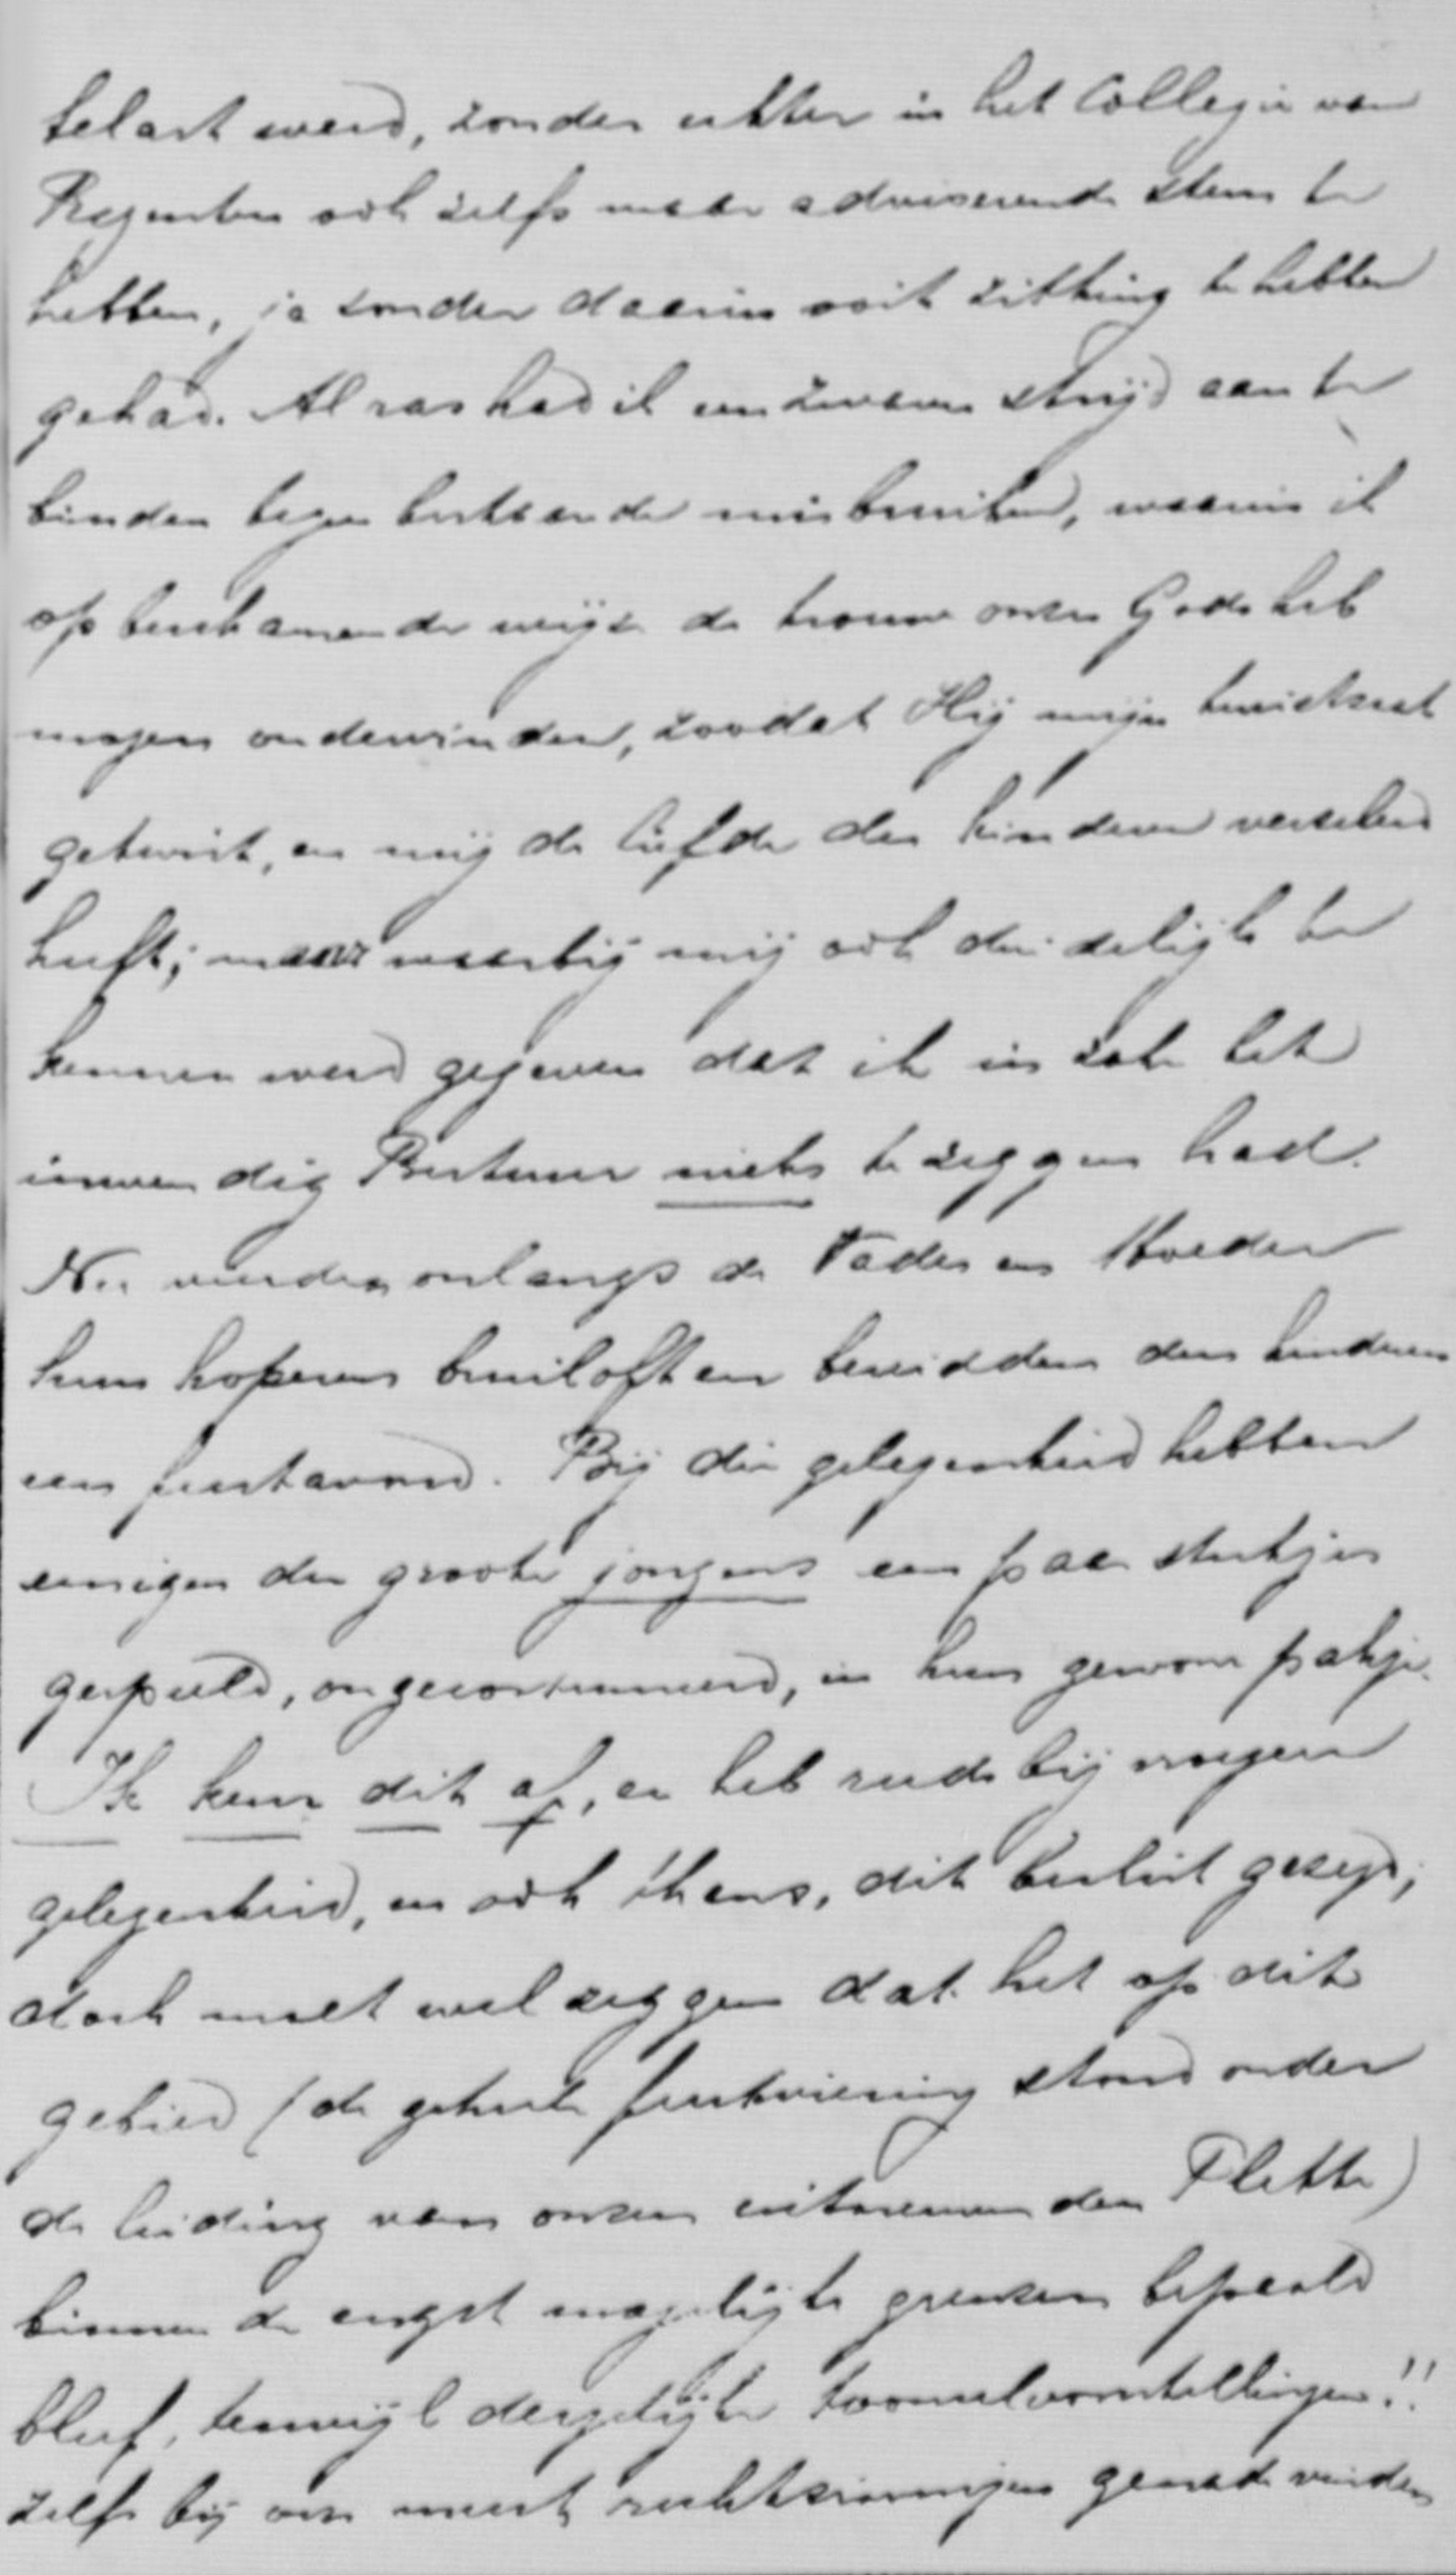 belast werd, zonder echter in het Collegie van
Regenten ook zelfs maar adviserende stem te
hebben, ja zonder daarin ooit zitting te hebben
gehad. Al ras had ik een zwaren strijd aan te
binden tegen bestaande misbruiken, waarin ik
op beschamende wijze de trouw onzes Gods heb
mogen ondervinden, zoodat Hij mijn
getuint, en mij de liefde der kinderen verzekerd
heeft; maar waarbij mij ook duidelijk te
kennen werd gegeven dat ik in zake het
inwendig Bestuur niets te zeggen had.
Nu vierden onlangs de Vader en Moeder
hun koperen bruiloft en bereidden den kinderen
een feestavond. Bij die gelegenheid hebben
eenigen der groote jongens een paar stukjes
gespeeld, ongecostumeerd, in hun gewone pakje.
Ik keur dit af, en heb reeds bij vroegere
gelegenheid, en ook thans, dit beslist gezegd;
doch moet wel zeggen dat het op dit
gebied (de geheele feestviering stond onder
de leiding van onzen uitnemenden Pletts)
binnen de engst mogelijke grenzen bepaald
bleef, terwijl dergelijke tooneelvoorstellingen!!
zelfs bij ons meest rechtzinnigen genade vinden